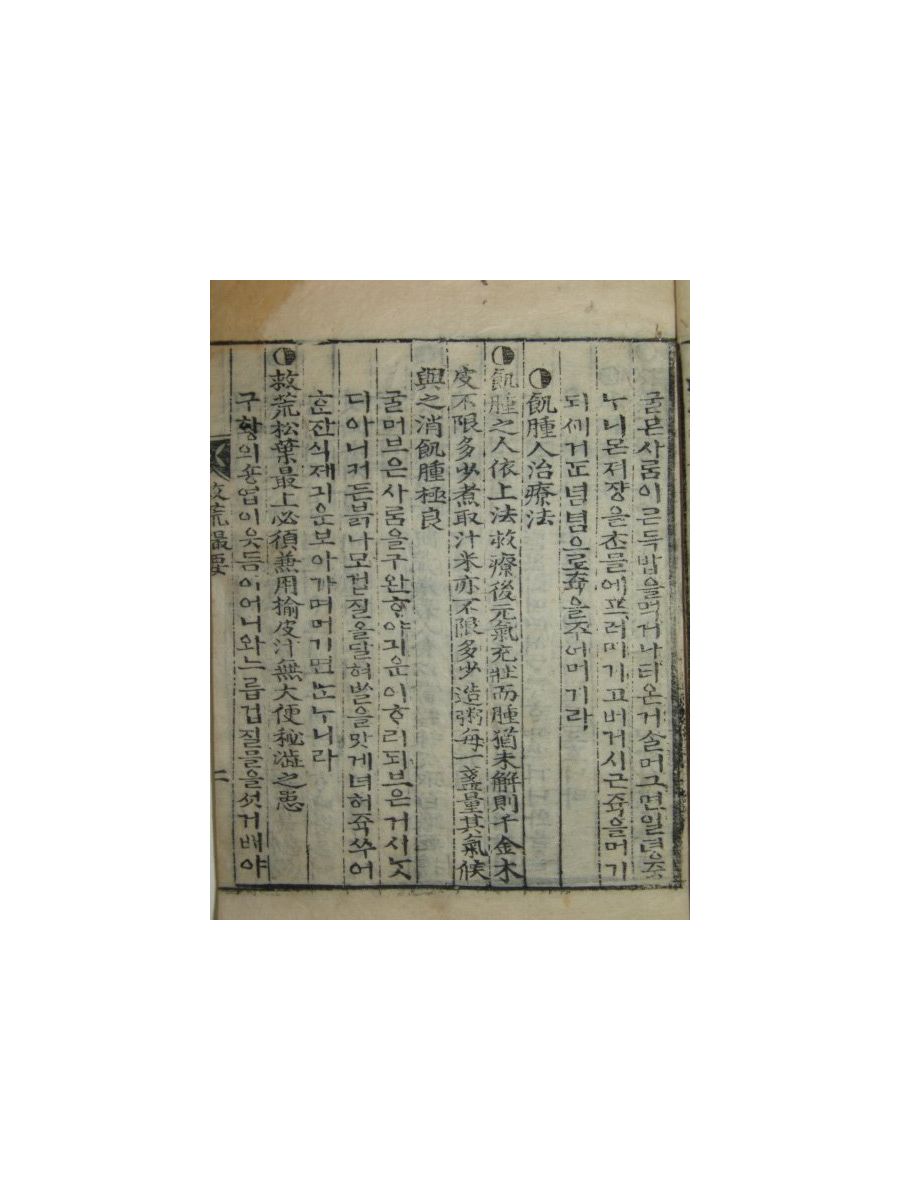 굴믄사ᄅᆞᆷ이ᄀᆞᄃᆞᆨ밥을먹거나ᄯᅩ온거슬머그면일뎡죽
ᄂᆞ니몬져쟝을ᄎᆞᆫ믈에프러머기고버거시근쥭을머기
되
쥭을주어머기라
◑飢腫人治療法
◑飢腫之人依上法救療後元氣充壯而腫猶未解則千金木
皮不限多少煮取汁米亦不限多少造粥每一盞量其氣候
與之消飢腫極良
굴머브은사ᄅᆞᆷ을구완ᄒᆞ야긔운이ᄎᆞ리되브은거시ᄂᆞᆺ
디아니커든븕나모겁질을달혀ᄡᆞᆯ을맛게녀허쥭쑤어
ᄒᆞᆫ잔식제긔운보아가며머기면됴ᄂᆞ니라
◑救荒松葉最上必須兼用楡皮汁無大便秘澁之患
구황의숑엽이웃듬이어니와느릅겁질믈을섯거배야
救荒撮要
二